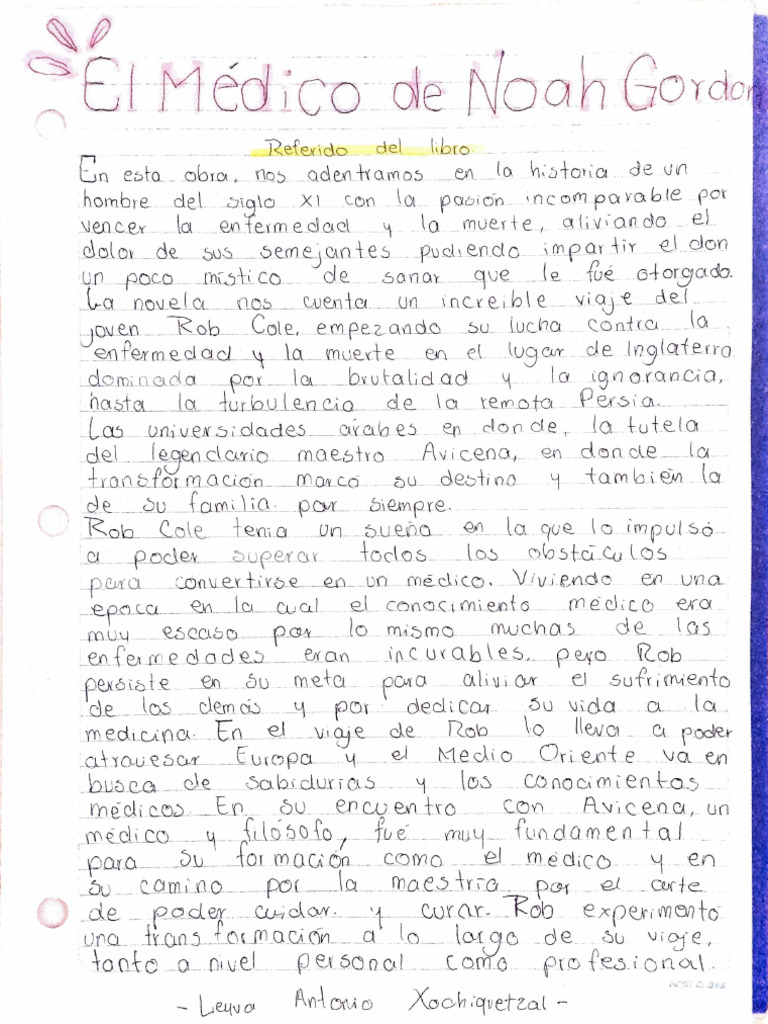 El Médico de Noah Gordon
Referido del libro
En esta obra, nos adentramos en la historia de un
hombre del siglo XI con la pasión incomparable por
vencer la enfermedad y la muerte, aliviando el
dolor de sus semejantes pudiendo impartir el don
un poco místico de sanar que le fué otorgado.
La novela nos cuenta un increible viaje del
joven Rob Cole, empezando su lucha contra la
enfermedad y la muerte en el lugar de Inglaterra
dominada por la brutalidad y la ignorancia,
hasta la turbulencia de la remota Persia.
Las universidades árabes en donde, la tutela
del legendario maestro Avicena, en donde la
transformación marcó su destino y también la
de su familia por siempre.
Rob Cole tenia un sueño en la que lo impulsó
a poder superar todos los obstáculos
para convertirse en un médico. Viviendo en una
epoca en la cual el conocimiento médico era
muy escaso por lo mismo muchas de las
enfermedades eran incurables, pero Rob
persiste en su meta para aliviar el sufrimiento
de los demás y por dedicar su vida a la
medicina. En el viaje de Rob lo lleva a poder
atravesar Europa y el Medio Oriente va en
busca de sabidurias y los conocimientos
médicos. En su encuentro con Avicena, un
médico y filósofo, fué muy fundamental
para su formación como el médico y en
su camino por la maestría por el arte
de poder cuidar. y curar. Rob experimento
una transformación a lo largo de su viaje,
tanto a nivel personal como profesional.
- Leyva Antonio Xochiquetzal -